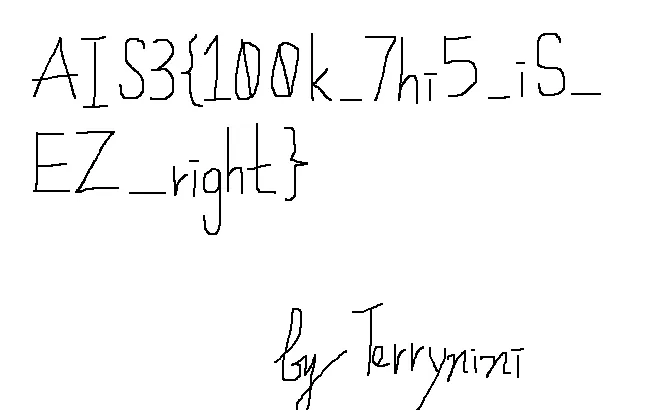 AIS3{100k_7hi5_iS_
EZ_right}
by Terrynini